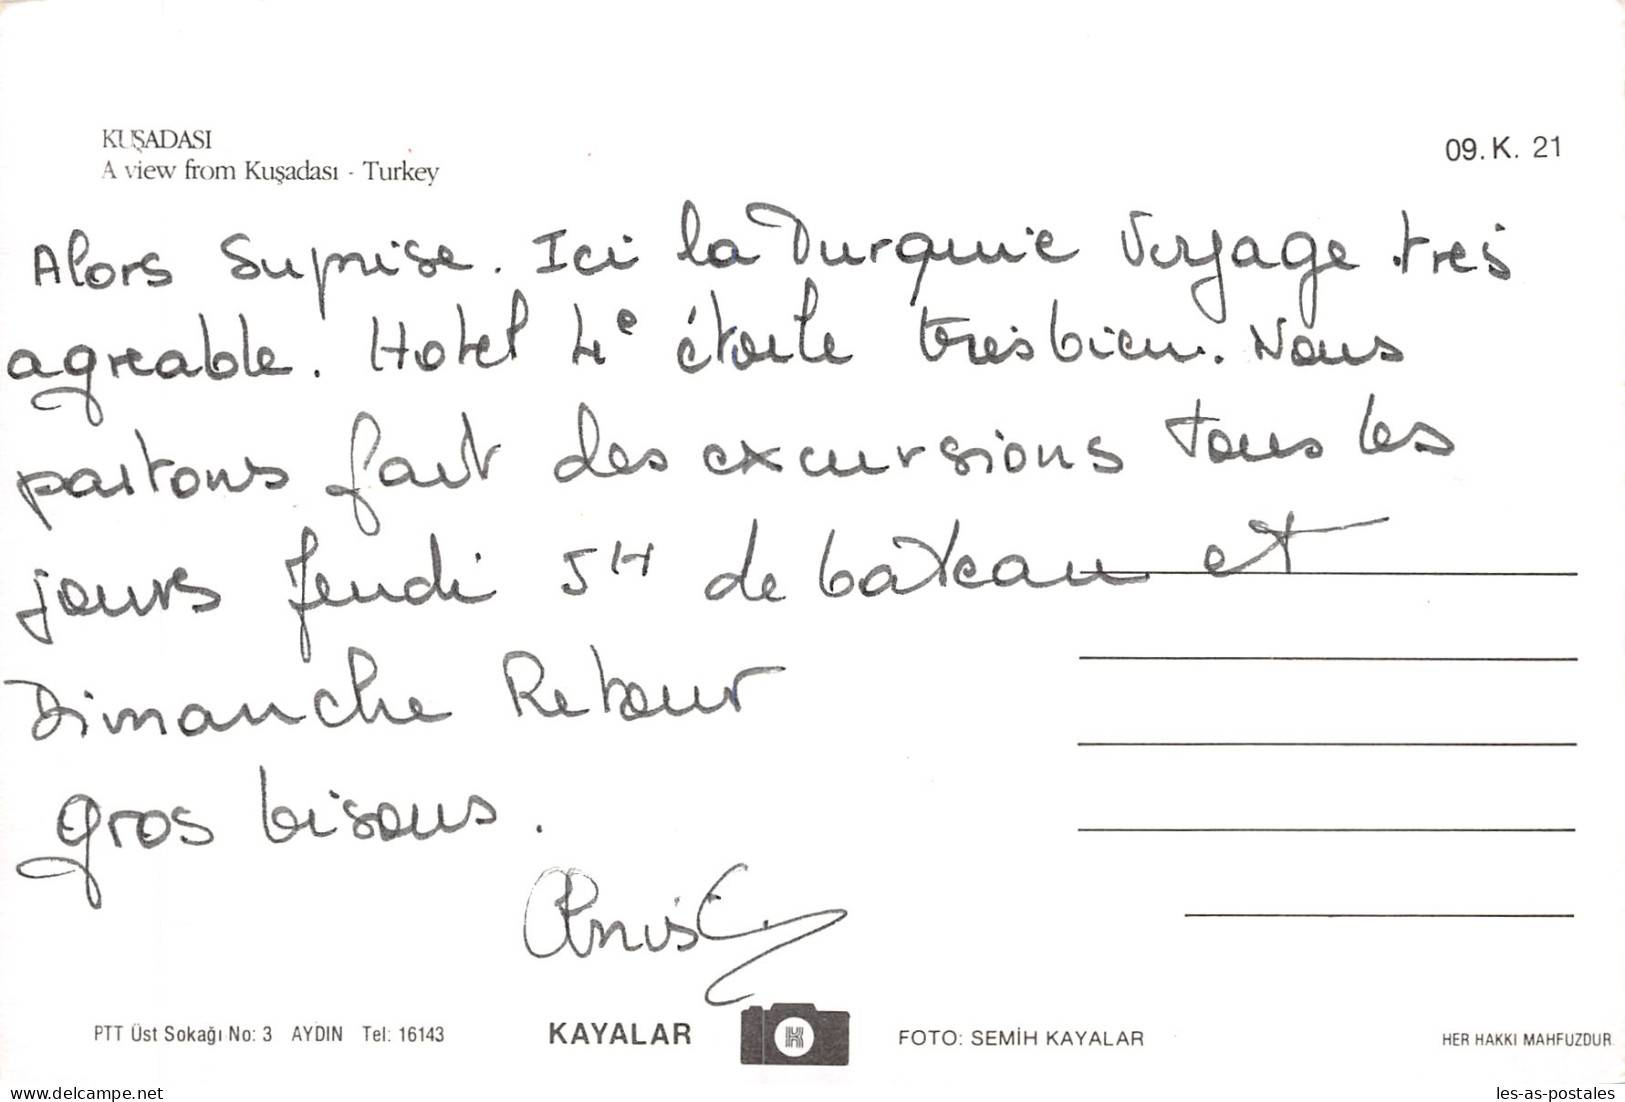 KUŞADASI
A view from Kuşadası - Turkey
09. K. 21
Alors Suprise. Ici la Turquie Voyage tres
agreable. Hotel 4e étoile tres bien. Nous
partons fait des excursions tous les
jours Jeudi 5H de bâteau et
Dimanche Retour
gros bisous.
PTT Üst Sokağı No: 3 AYDIN Tel: 16143
KAYALAR
K
FOTO: SEMİH KAYALAR
HER HAKKI MAHFUZDUR
delcampe.net
les-as-postales